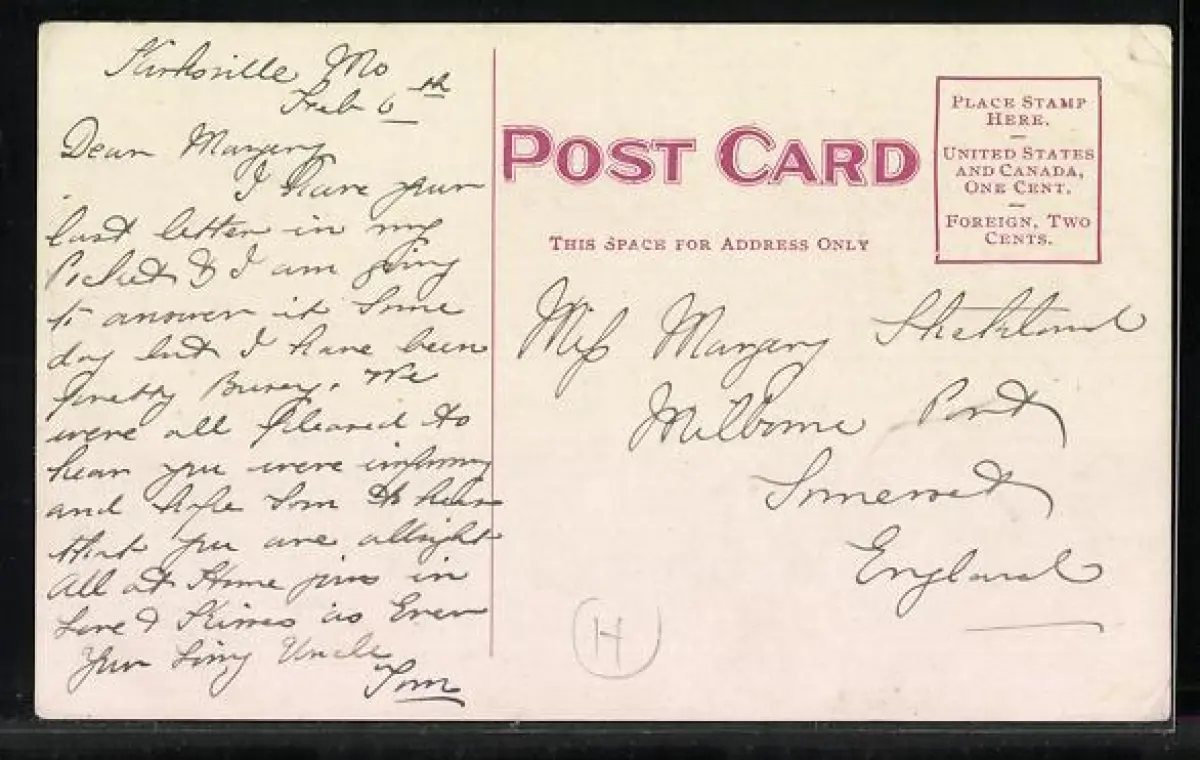 Kirksville Mo
Feb 6th
Dear Margery
I have your
last letter in my
Pocket & I am going
to answer it some
day but I have been
pretty Busey. We
were all pleased to
hear you were improving
and hope soon to hear
that you are allright
All at Home join in
Love & Kisses as Ever
Your Loving Uncle
Tom
POST CARD
THIS SPACE FOR ADDRESS ONLY
PLACE STAMP
HERE.
—
UNITED STATES
AND CANADA,
ONE CENT.
—
FOREIGN, TWO
CENTS.
Miss Margery
Milborne Port
Somerset
England
H